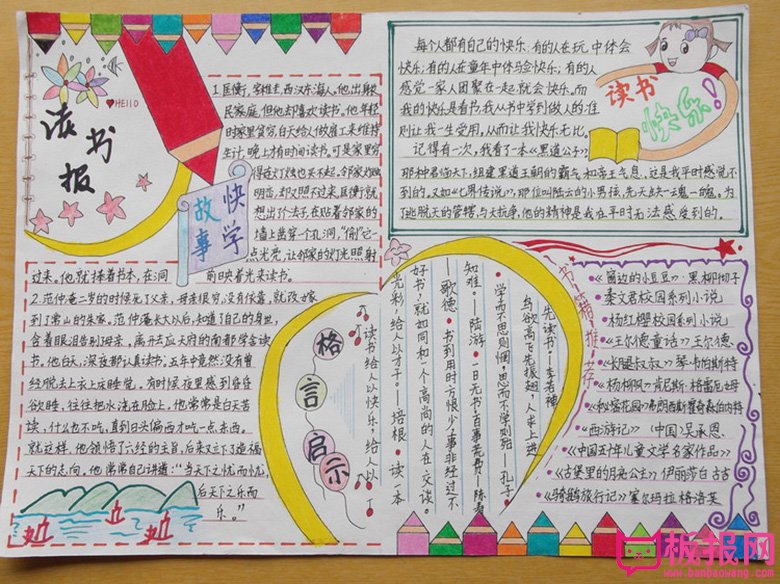 读书报
Hello
快学
故事
1.匡衡,字稚圭,西汉东海人。他出身农
民家庭,但他却喜欢读书。他年轻
时家里贫穷,白天给人做雇工来维持
生计,晚上才有时间读书。可是家里穷
得连灯烛也买不起。邻家灯烛
明亮,却又照不过来,匡衡就
想出个法子,在贴着邻家的
墙上凿穿一个孔洞,“偷”它一
点光亮,让邻家的灯光照射
过来。他就捧着书本,在洞
前映着光来读书。
2.范仲淹二岁的时候死了父亲,母亲很穷,没有依靠,就改嫁
到了常山的朱家。范仲淹长大以后,知道了自己的身世,
含着眼泪告别母亲,离开去应天府的南都学舍读
书。他白天、深夜都认真读书。五年中竟然没有曾
经脱去上衣上床睡觉。有时候夜里感到昏昏
欲睡,往往把水浇在脸上。他常常是白天苦
读,什么也不吃,直到日头偏西才吃一点东西。
就这样,他领悟了六经的主旨,后来又立下造福
天下的志向。他常常自己讲道:“当先天下之忧而忧,
后天下之乐而
乐。”
读书
快乐!
每个人都有自己的快乐:有的人在玩中体会
快乐;有的人在童年中体验快乐;有的人
感觉一家人团聚在一起就会快乐。而
我的快乐是看书,我从书中学到做人的准
则让我一生受用,从而让我快乐无比。
记得有一次,我看了一本《黑道公子》
那种君临天下,组建黑道王朝的霸气和帝王气息,这是我平时感觉不
到的。又如《七界传说》,那位叫陆云的小男孩,先天缺一魂一魄,为
了逃脱天的管辖,与天抗争,他的精神是我在平时无法感受到的。
格言启示
先读书。—李若禅
鸟欲高飞先振翅,人求上进
学而不思则惘,思而不学则殆。—孔子
知难。—陆游
一日无书,百事荒芜。—陈寿
—歌德
书到用时方恨少,事非经过不
好书,就如同和一个高尚的人在交谈。
光彩,给人以才干。—培根
读一本
读书给人以快乐,给人以
书籍推荐
《窗边的小豆豆》黑柳彻子
秦文君校园系列小说
杨红樱校园系列小说
《王尔德童话》王尔德
《长腿叔叔》琴·韦伯斯特
《杨柳风》肯尼斯·格雷厄姆
《秘密花园》弗朗西斯·霍奇森伯内特
《西游记》(中国)吴承恩
《中国五十年儿童文学名家作品》
《古堡里的月亮公主》伊丽莎白·古吉
《骑鹅旅行记》塞尔玛·拉格洛芙
板报网
www.banbaowang.com